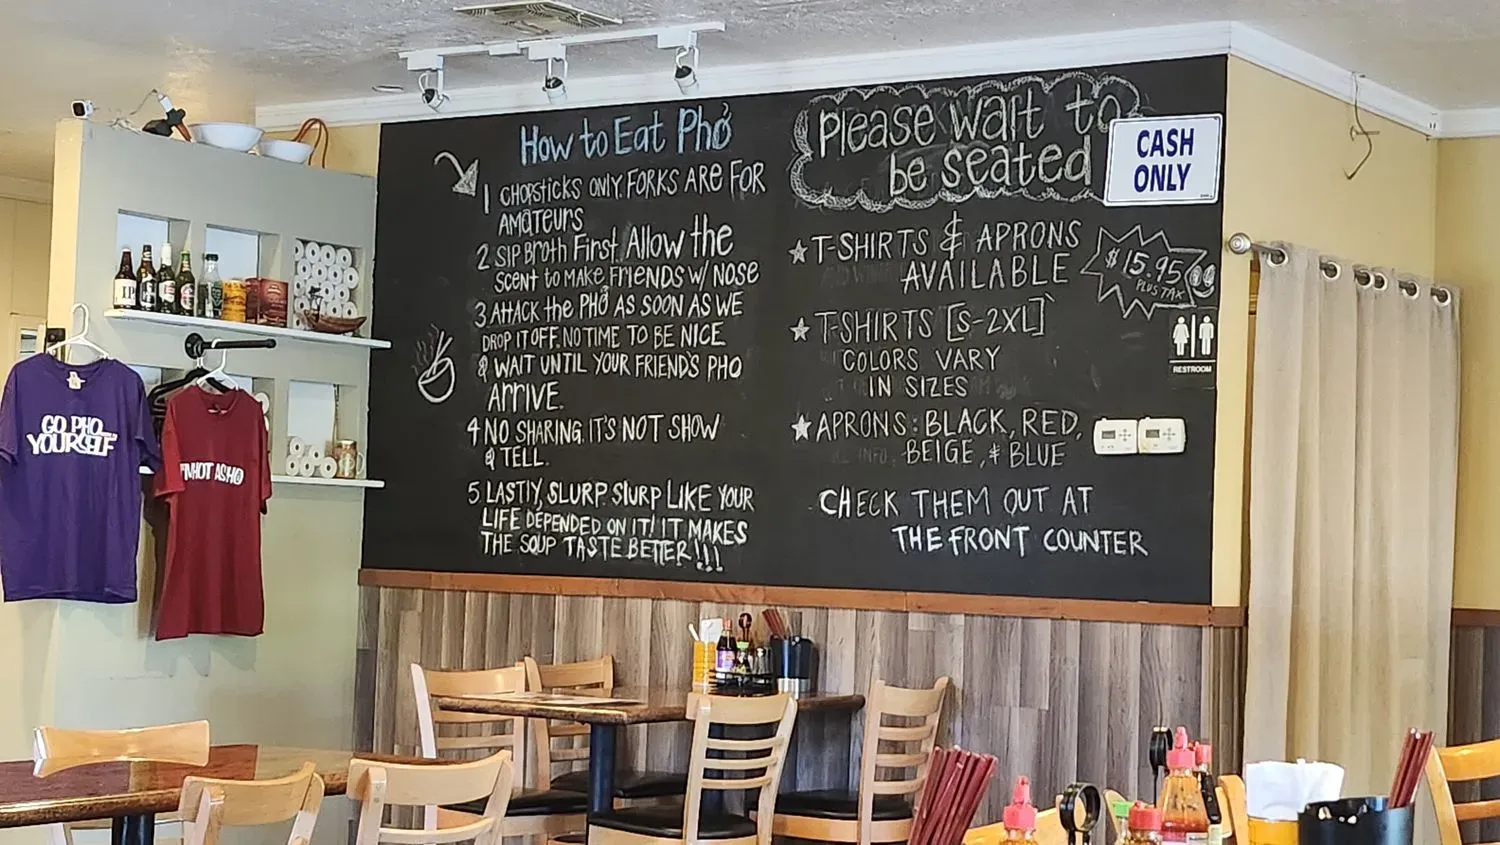 How to Eat Phở
1 CHOPSTICKS ONLY. FORKS ARE FOR
AMATEURS
2 SIP Broth First. Allow the
SCENT to MAKE FRIENDS W/ NOSE
3 Attack the PHỞ AS SOON AS WE
DROP IT OFF. NO TIME TO BE NICE
& WAIT UNTIL YOUR FRIEND'S PHO
ARRIVE.
4 NO SHARING. IT'S NOT SHOW
& TELL.
5 LASTLY, SLURP. SLURP LIKE YOUR
LIFE DEPENDED ON IT! IT MAKES
THE SOUP TASTE BETTER!!!
Please wait to
be seated
CASH
ONLY
T-SHIRTS & APRONS
AVAILABLE
$15.95
PLUS TAX
T-SHIRTS [S-2XL]
COLORS VARY
IN SIZES
RESTROOM
APRONS: BLACK, RED,
BEIGE, & BLUE
CHECK THEM OUT AT
THE FRONT COUNTER
GO PHO
YOURSELF